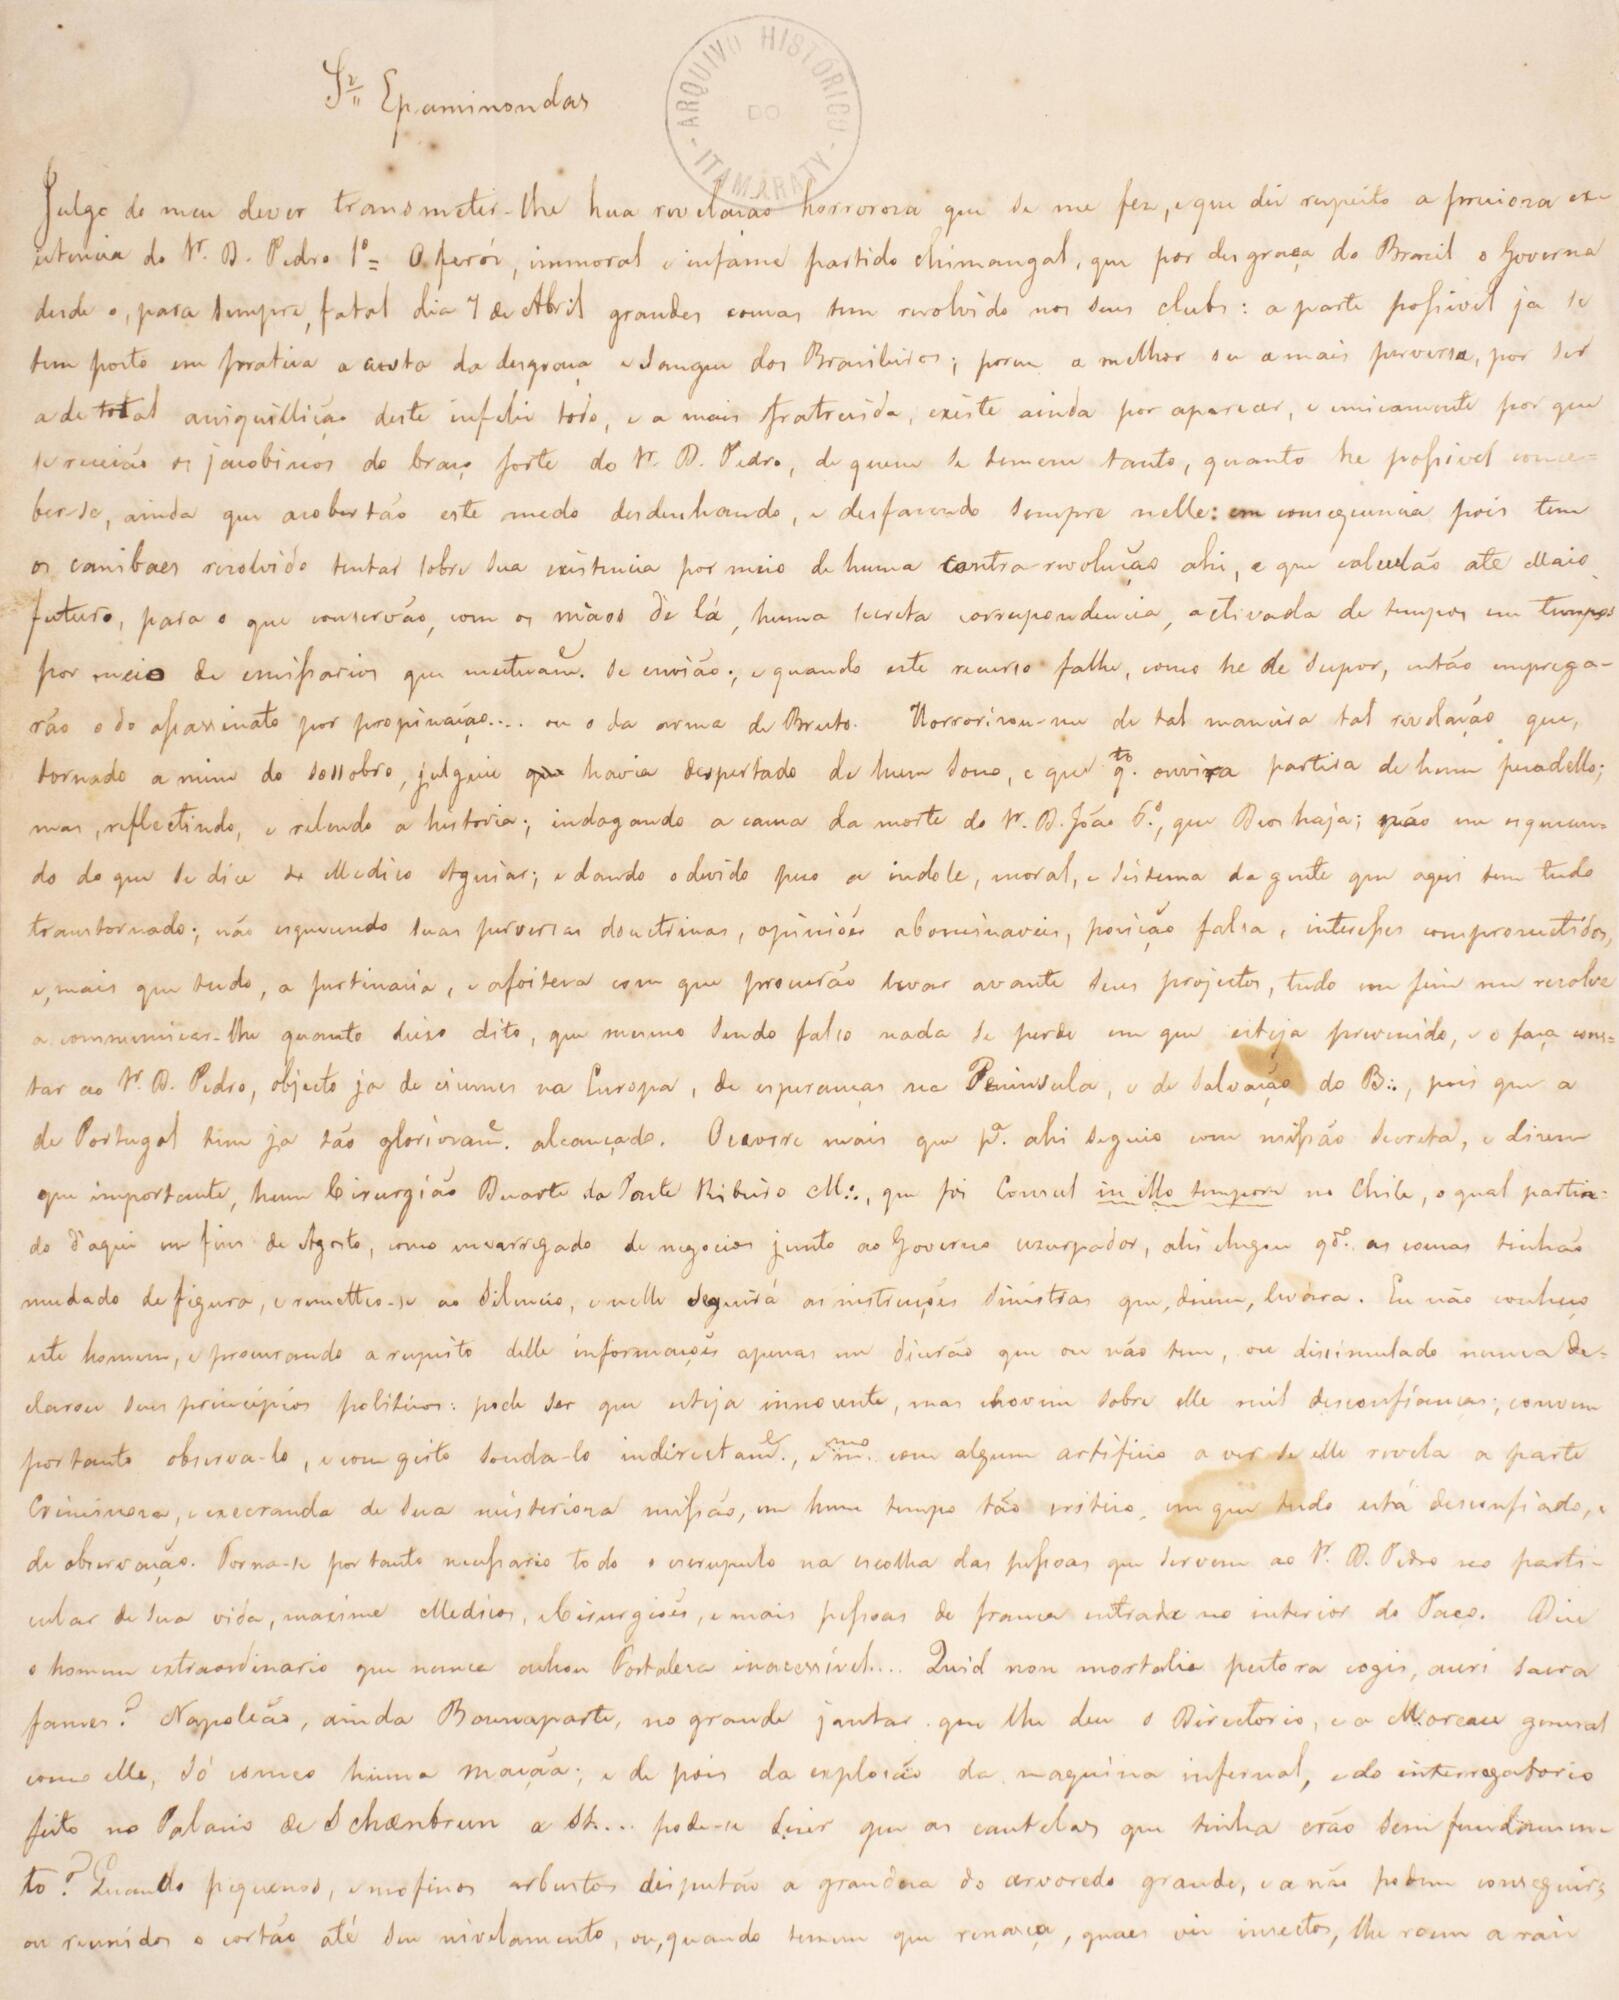 ARQUIVO HISTORICO DO ITAMARATY
Sr. Epaminondas
Julgo do meu dever transmetir-lhe hua revelaçao horroroza que se me fez, e que diz respeito a precioza exe
istencia do Sr. D. Pedro 1º = O feróz, immoral e infame partido chimangal, que por desgraça do Brazil o Governa
desde o, para sempre, fatal dia 7 de Abril grandes couzas tem revolvido nos seus clubs: a parte possivel ja se
tem posto em pratica a custa da desgraça e sangue dos Brasileiros; porem a melhor ou a mais perversa, por ser
a de total aniquillição deste infeliz todo, e a mais fratrecida, existe ainda por aparecer, e unicamente por que
se receião os jacobinos do braço forte do Sr. D. Pedro, de quem se temem tanto, quanto he possivel conce=
ber-se, ainda que acobertão este medo desdenhando, e desfazendo sempre nelle: em consequencia pois tem
os canibaes rezolvido tentar sobre sua existencia por meio de huma contra-revolução ahi, e que calculão até Maio
futuro, para o que conservão, com os máos de lá, huma secreta correspondencia, activada de tempos em tempos
por meio de emissarios que mutuame. se envião; e quando este recurso falhe, como he de supor, então emprega-
rão o do assassinato por propinação.... ou o da arma de Bruto. Horrorizou-me de tal maneira tal revelação que,
tornado a mim do sossobro, julguei que havia despertado de hum sono, e que qto. ouvira partira de hum pezadello;
mas, reflectindo, e relendo a historia; indagando a cauza da morte do Sr. D. João 6º, que Deos haja; não me esquecen-
do do que se dice do Medico Aguiar; e dando o devido pezo a indole, moral, e sistema da gente que aqui tem tudo
transtornado; não esquecendo suas perversas douctrinas, opiniões abominaveis, pozição falsa, interesses compromettidos,
e, mais que tudo, a pertinacia, e afoiteza com que procurão levar avante seus projectos, tudo em fim me rezolve
a communicar-lhe quanto deixo dito, que mesmo sendo falso nada se perde em que esteja prevenido, e o faça cons=
tar ao Sr. D. Pedro, objecto ja de ciumes na Europa, de esperanças na Peninsula, e de salvação do B:., pois que a
de Portugal tem ja tão gloriozame. alcançado. Occorre mais que pa. ahi seguio com missão secreta, e dizem
que importante, hum Cirurgião Duarte da Ponte Ribeiro M:., que foi Consul in illo tempore no Chile, o qual partin=
do d'aqui em fins de Agosto, como encarregado de negocios junto ao Governo uzurpador, ahi chegou qdo. as couzas tinhão
mudado de figura, e remetteo-se ao silencio, e nelle seguirá as instrucções sinistras que, dizem, levára. Eu não conheço
este homem, e procurando a respeito delle informações apenas me dicerão que ou não tem, ou dissimulado nunca de=
clarou seus principios politicos: pode ser que esteja innocente, mas chovem sobre elle mil desconfianças; convem
portanto observa-lo, e com geito sonda-lo indirectame., e mmo. com algum artificio a ver se elle revela a parte
Criminoza, e execranda de sua misterioza missão, em hum tempo tão critico, em que tudo está desconfiado, e
de observação. Torna-se por tanto necessario todo o escrupulo na escolha das pessoas que servem ao Sr. D. Pedro no parti-
cular de sua vida, maxime Medicos, e Cirurgiões, e mais pessoas de franca entrada no interior do Paço. Dice
o homem extraordinario que nunca achou Fortaleza inacessivel.... Quid non mortalia pectora cogis, auri sacra
fames? Napoleão, ainda Bounaparte, no grande jantar que lhe deu o Directorio, e a Moreau general
como elle, só comeo huma maçãa; e de pois da explosão da maquina infernal, e do interregatorio
feito no Palacio de Schœnbrun a St.... pode-se dizer que as cautelas que tinha erão sem fundamen
to? Quando piquenos, e mofinos arbustos disputão a grandeza do arvoredo grande, e a não podem conseguir,
ou reunidos o cortão até seu nivelamento, ou, quando temem que renasça, quaes vis insectos, lhe roem a raiz